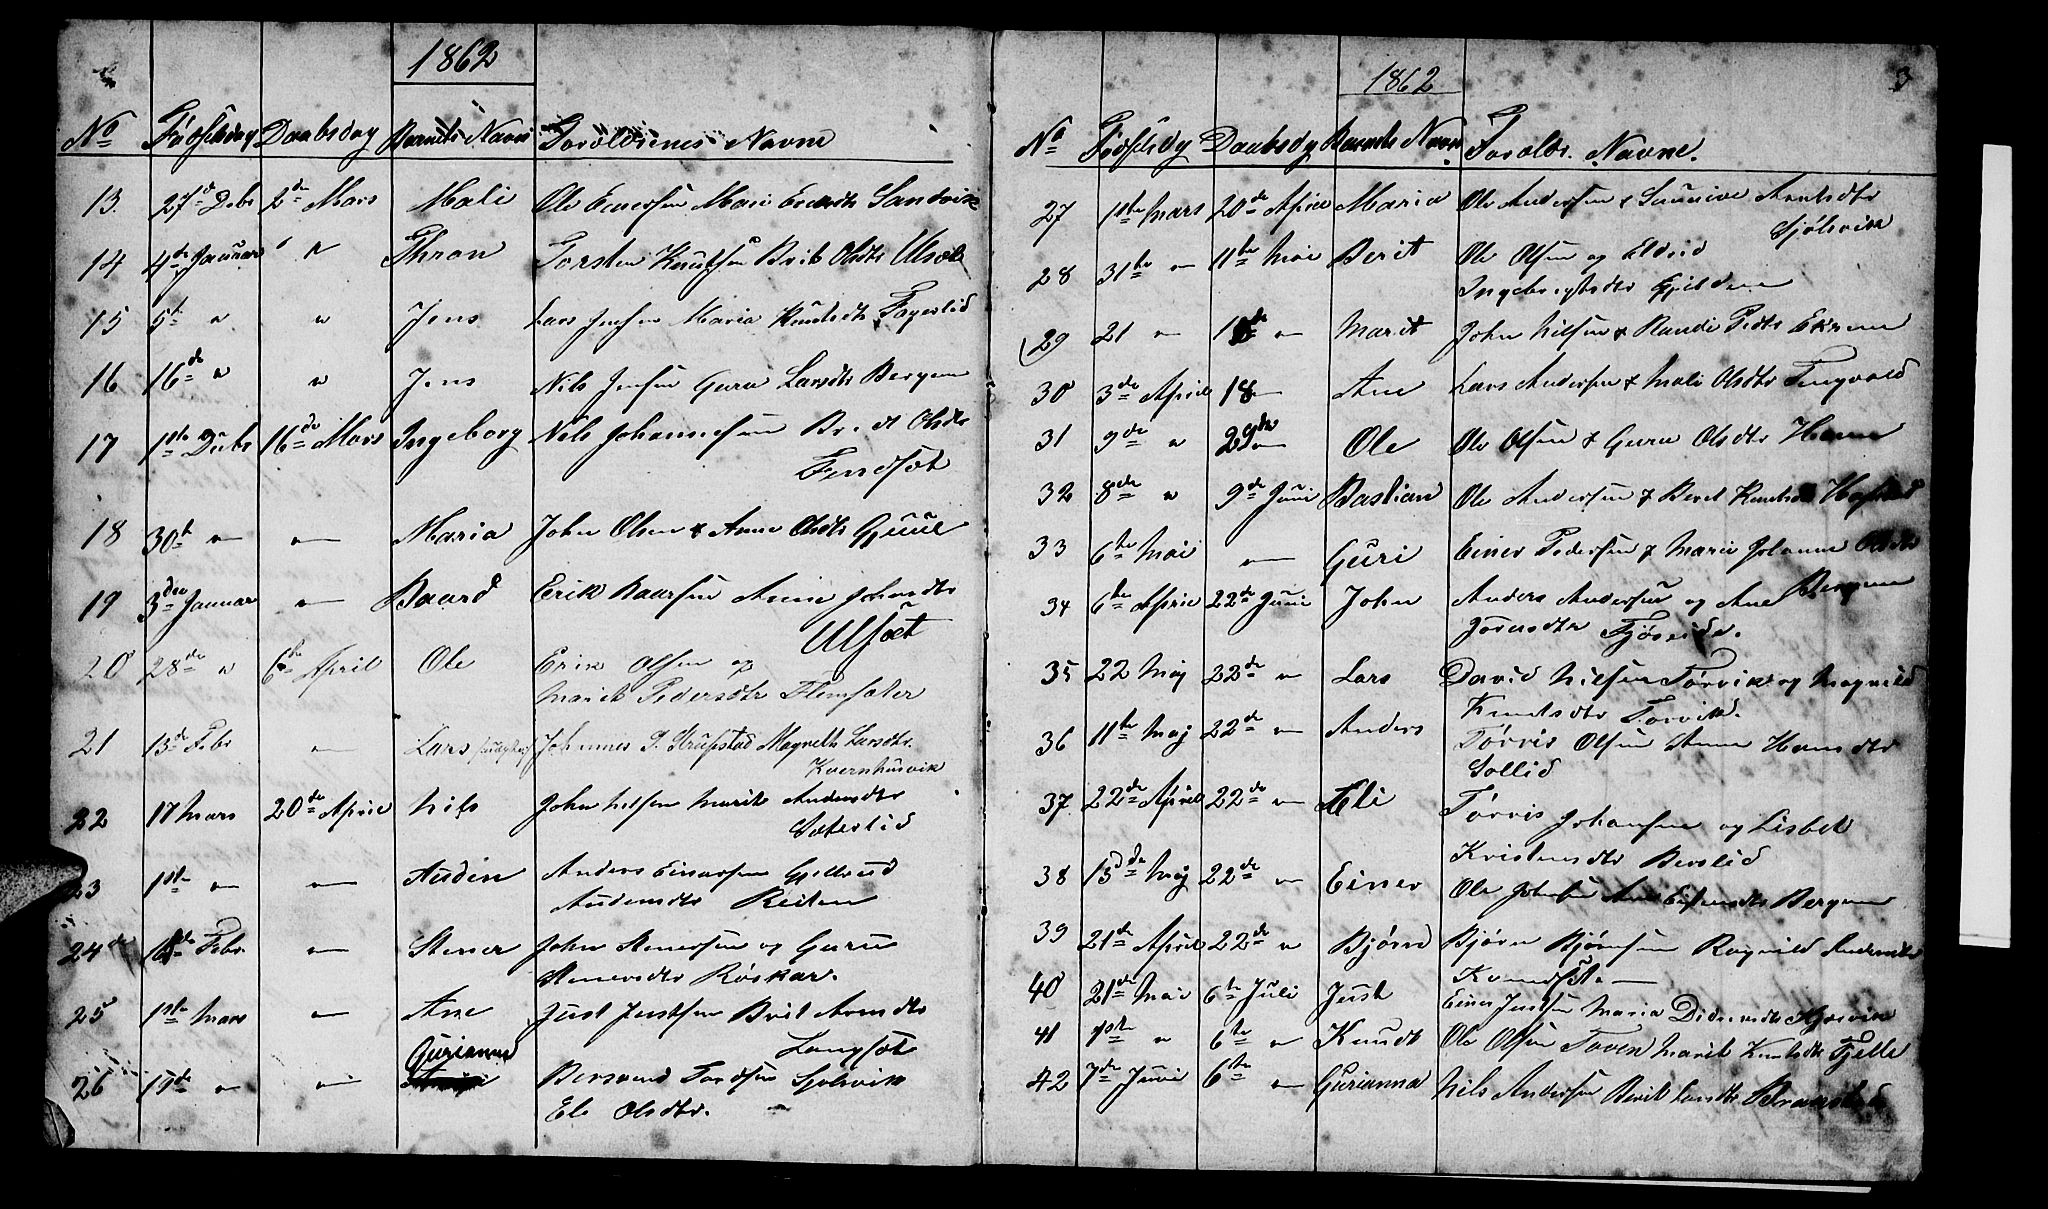 1862
No Fødselsdag Daabsdag Barnets Navn Forældrenes Navne
13. 27de Debr 2de Mars Mali Ole Eenersen Mari Sandvik
14 4de Januar " Thron Torsten Knutsen Brit Olsdtr Ulsæt
15 5te " " Jens Lars Jensen Maria Knutsdtr Fagerlid
16 16de " " Jens Nils Jensen Guru Larsdtr Bergem
17 1ste Debr 16de Mars Ingeborg Nils Johannesen Berit Olsdtr
Fendsæt
18 30te " — Maria John Olsen & Anne Olsdtr Gjüül
19 3die Januar — Baard Erik Baarsen Anne Johnsdtr
Ulsæt
20 28de " 6te April Ole Erik Olsen og
Marit Pedersdtr Flemsæter
21 13de Febr — Lars Johannes P. Strupstad Magreth Larsdtr.
Kvernhusvik
22 17 Mars 20de April Nils John Nilsen Marit Andersdtr
Sæterlid
23 1ste — — Auden Anders Einarsen
Audensdtr Reiten
24 Febr. — Stener John Stenersen og Guru
Stenersdtr Røskar.
25 1ste Mars — Ane Just Justsen Brit Arntsdtr
Langsæt
Gurianna
26 19de — — Bersvend Tordsen Sjølsvik
Eli Olsdtr.
1862 3
No Fødselsdag Daabsdag Barnets Navn Foreldr. Navne.
27 1ste Mars 20de April Maria Ole Andersen & Sünnive Arntsdtr
Sjølsvik
28 31te — 11te Mai Berit Ole Olsen og Eldrid
Ingebrigtsdtr Gjeldnes
29 21 — — Marit John Nilsen & Randi Pedtr
30 3de April 18 — Ane Lars Andersen & Mali Olsdtr Tingvold
31 9de " 29de — Ole Ole Olsen & Guru Olsdtr
32 8de " 9de Juni Bastian Ole Andersen & Beret Knutsdtr
33 6te Mai — Guri Einer Pedersen & Marie Johanne Olsdtr
Bergem
34 6te April 22de Juni John Anders Andersen og Ane
Joensdtr
35 22 Maj 22de " Lars David Nilsen Torvik og Magnild
Knutsdtr Torvik.
36 11te Maj 22de — Anders Tørris Olsen Anne Hansdtr
Sollid
37 22de April 22de — Eli Tørris Johansen og Lisbet
Kristensdtr Berslid
38 13de Maj 22de — Einer Ole Johnsen Bergem
39 21de April 22de " Bjørn Bjørn Bjørnsen Ragnild Andersdtr
40 21de Mai 6te Juli Just Einer Justsen Maria
41 1ste " 6te " Knudt Ole Olsen Marit Knutsdtr Fjelle
42 7de Juni 6te — Gurianna Nils Andersen Berit Larsdtr